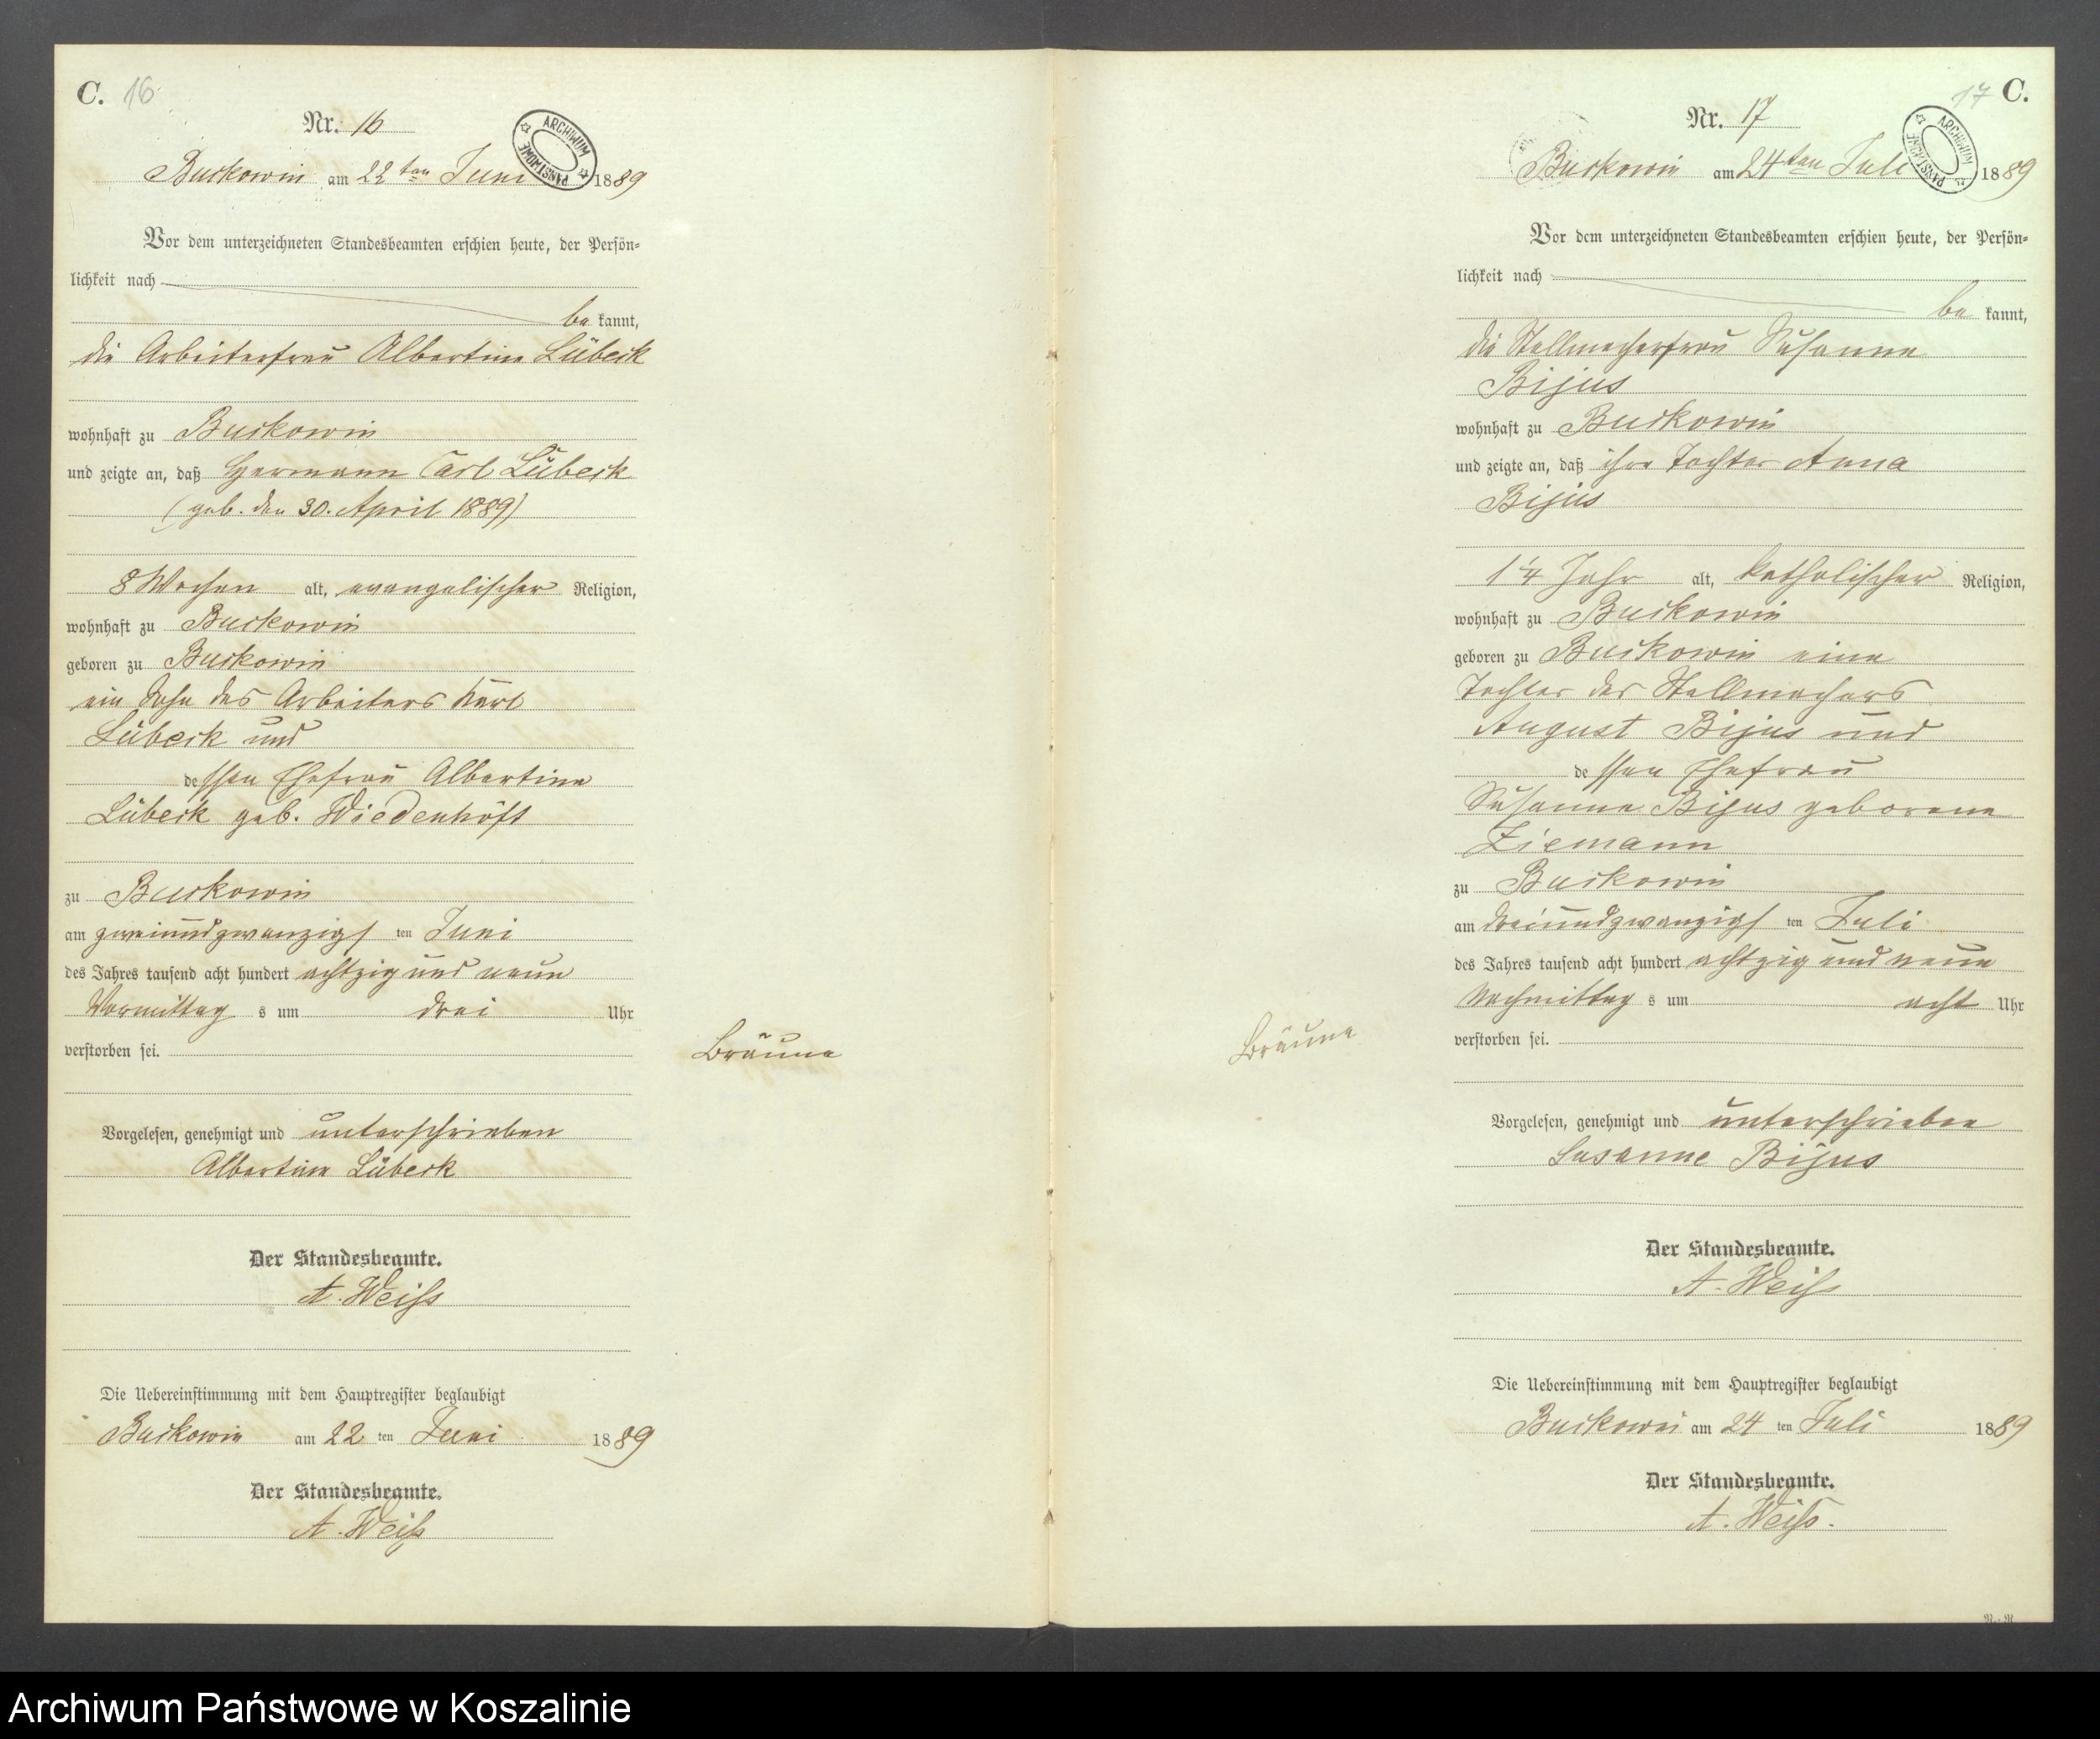 C. 16
Nr. 16
ARCHIWUM PAŃSTWOWE
Buckowin am 22ten Juni 1889
Vor dem unterzeichneten Standesbeamten erschien heute, der Persön-
lichkeit nach
be kannt,
die Arbeiterfrau Albertine Lübeck
wohnhaft zu Buckowin
und zeigte an, daß Hermann Carl Lübeck
(geb. den 30. April 1889)
8 Wochen alt, evangelischer Religion,
wohnhaft zu Buckowin
geboren zu Buckowin
ein Sohn des Arbeiters Karl
Lübeck und
dessen Ehefrau Albertine
Lübeck geb. Wiedenhöft
zu Buckowin
am zweiundzwanzigsten Juni
des Jahres tausend acht hundert achtzig und neun
Vormittags um drei Uhr
verstorben sei.
Bräune
Vorgelesen, genehmigt und unterschrieben
Albertine Lübeck
Der Standesbeamte.
A. Weiß
Die Uebereinstimmung mit dem Hauptregister beglaubigt
Buckowin am 22 ten Juni 1889
Der Standesbeamte.
A. Weiß
17 C.
Nr. 17
ARCHIWUM PAŃSTWOWE
Buckowin am 24ten Juli 1889
Vor dem unterzeichneten Standesbeamten erschien heute, der Persön-
lichkeit nach
be kannt,
die Stellmacherfrau Susanna
Bijus
wohnhaft zu Buckowin
und zeigte an, daß ihre Tochter Anna
Bijus
1 1/4 Jahr alt, katholischer Religion,
wohnhaft zu Buckowin
geboren zu Buckowin eine
Tochter des Stellmachers
August Bijus und
dessen Ehefrau
Susanna Bijus geborene
Ziemann
zu Buckowin
am dreiundzwanzigsten Juli
des Jahres tausend acht hundert achtzig und neun
Nachmittags um acht Uhr
verstorben sei.
Bräune
Vorgelesen, genehmigt und unterschrieben
Susanne Bijus
Der Standesbeamte.
A. Weiß
Die Uebereinstimmung mit dem Hauptregister beglaubigt
Buckowin am 24 ten Juli 1889
Der Standesbeamte.
A. Weiß.
Archiwum Państwowe w Koszalinie